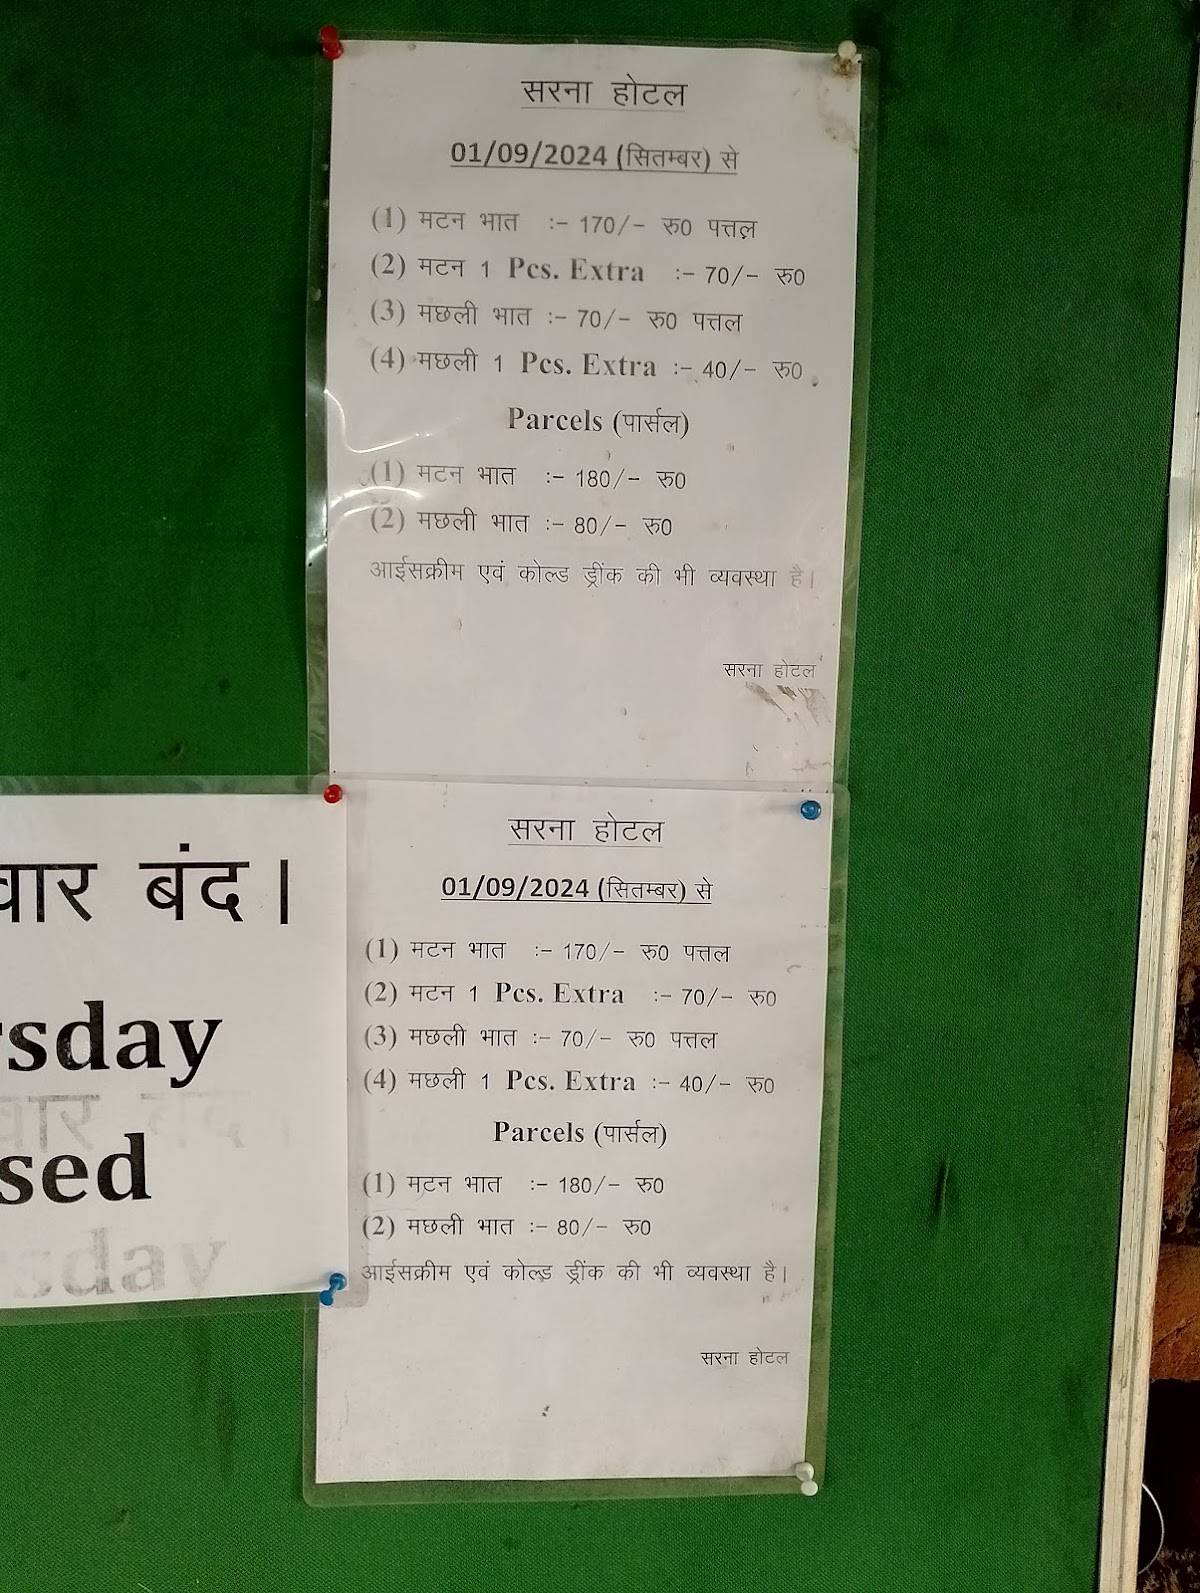 सरना होटल
01/09/2024 (सितम्बर) से
(1) मटन भात :- 170/- रु0 पत्तल
(2) मटन 1 Pcs. Extra :- 70/- रु0
(3) मछली भात :- 70/- रु0 पत्तल
(4) मछली 1 Pcs. Extra :- 40/- रु0
Parcels (पार्सल)
(1) मटन भात :- 180/- रु0
(2) मछली भात :- 80/- रु0
आईसक्रीम एवं कोल्ड ड्रींक की भी व्यवस्था है।
सरना होटल
वार बंद।
rsday
sed
सरना होटल
01/09/2024 (सितम्बर) से
(1) मटन भात :- 170/- रु0 पत्तल
(2) मटन 1 Pcs. Extra :- 70/- रु0
(3) मछली भात :- 70/- रु0 पत्तल
(4) मछली 1 Pcs. Extra :- 40/- रु0
Parcels (पार्सल)
(1) मटन भात :- 180/- रु0
(2) मछली भात :- 80/- रु0
आईसक्रीम एवं कोल्ड ड्रींक की भी व्यवस्था है।
सरना होटल